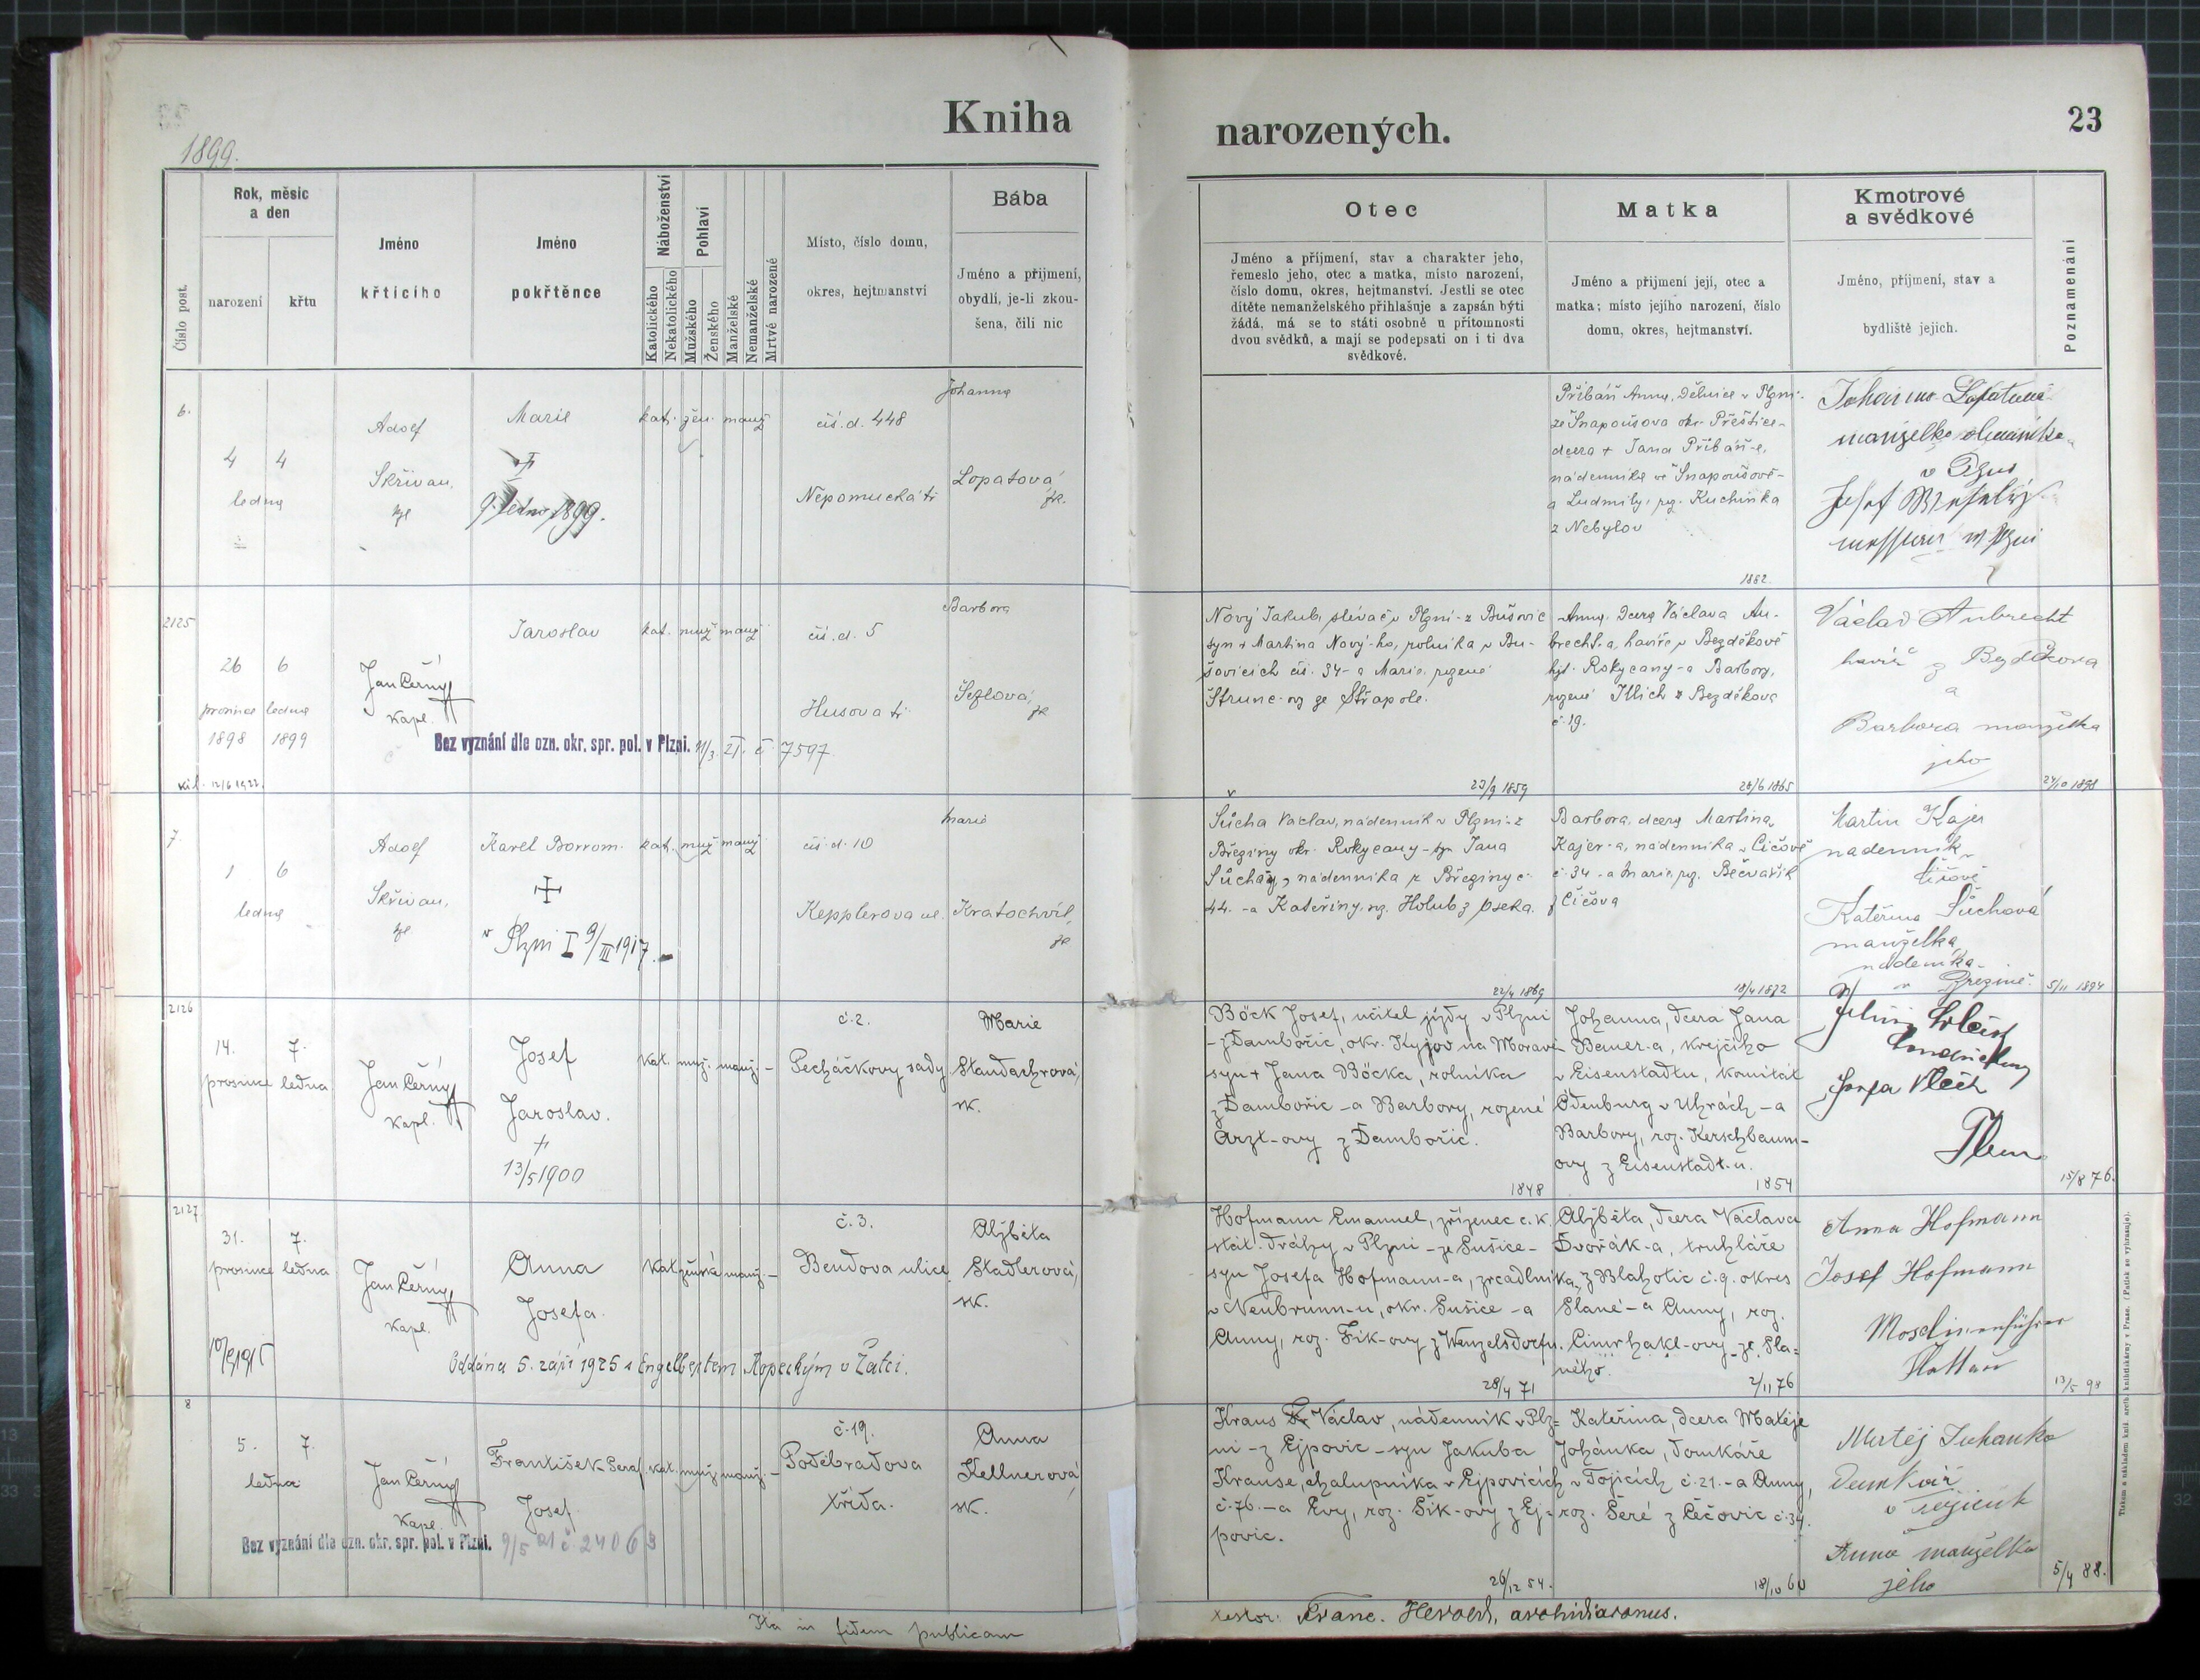 Kniha
narozených.
23
1899.
Číslo post.
Rok, měsíc
a den
narození
křtu
Jméno
křticího
Jméno
pokřtěnce
Náboženství
Katolického
Nekatolického
Pohlaví
Mužského
Ženského
Manželské
Nemanželské
Mrtvě narozené
Místo, číslo domu,
okres, hejtmanství
Bába
Jméno a příjmení,
obydlí, je-li zkou-
šena, čili nic
Otec
Jméno a příjmení, stav a charakter jeho,
řemeslo jeho, otec a matka, místo narození,
číslo domu, okres, hejtmanství. Jestli se otec
dítěte nemanželského přihlašuje a zapsán býti
žádá, má se to státi osobně u přítomnosti
dvou svědků, a mají se podepsati on i ti dva
svědkové.
Matka
Jméno a příjmení její, otec a
matka; místo jejího narození, číslo
domu, okres, hejtmanství.
Kmotrové
a svědkové
Jméno, příjmení, stav a
bydliště jejich.
Poznamenání
6.
4 4
ledna
Adolf
Skřivan,
Marie
9. ledna 1899.
kat. žen. manž
čís. d. 448
Nepomucká tř
Johanna
Lopatová
zk.
Přibáň Anna, dělnice v Plzni-
ze Snopoušova okr. Přeštice-
dcera + Jana Přibáň-e,
nádenníka ve Snopoušově-
a Ludmily, roz. Kuchinka
z Nebylov
1882.
Johanna Lopatová
manželka
v Plzni
Josef
v Plzni
2125
26 6
prosince ledna
1898 1899
Jan Černý
Kapl.
Jaroslav
kat. muž manž
čís. d. 5
Husova tř.
Barbora
Šezlová,
zk
Bez vyznání dle ozn. okr. spr. pol. v Plzni. 11/3. 21. č 7597.
12/6 1922.
Nový Jakub, slévač v Plzni-z Bušovic
syn + Martina Nový-ho, rolníka v Bu-
šovicích čís. 34- a Marie, rozené
Štrunc-ový ze Střapole.
23/9 1859
Anna, dcera Václava Au-
brecht-a, havíře v Bezděkově
hejt. Rokycany-a Barbory,
rozené Illich z Bezděkova
č. 19.
26/6 1865
Václav Aubrecht
havíř z Bezděkova
a
Barbora manželka
jeho
24/10 1898
7.
1 6
ledna
Adolf
Skřivan,
Karel Borrom.
v Plzni I 9/III 1917.
kat. muž manž
čís. d. 10
Kepplerova ul.
Marie
Kratochvíl,
zk
Šůcha Václav, nádenník v Plzni-z
Březiny okr. Rokycany-syn Jana
Šůchy, nádenníka z Březiny č.
44. -a Kateřiny, roz. Holub z Oseka.
22/4 1869
Barbora, dcera Martina
Kajer-a, nádenníka v Číčově
č. 34 -a Marie, roz. Bečvařík
z Číčova
18/4 1872
Martin Kajer
nádenník v
Číčově
Kateřina Šuchová
manželka
nádeníka
v Březině.
5/11 1894
2126
14. 7.
prosince ledna
Jan Černý
Kapl.
Josef
Jaroslav.
†
13/5 1900
Kat. muž. manž. -
č. 2.
Pecháčkovy sady
Marie
Standachrová,
zk.
Böck Josef, učitel jízdy v Plzni
-z Dambořic, okr. Kyjov na Moravě
syn + Jana Böcka, rolníka
z Dambořic -a Barbory, rozené
Arzt-ovy z Dambořic.
1848
Johanna, dcera Jana
Bauer-a, krejčího
v Eisenstadtu, komitát
Ödenburg v Uhrách -a
Barbory, roz. Kerschbaum-
ovy z Eisenstadt-u.
1854
15/8 76.
2127
31. 7.
prosince ledna
Jan Černý
Kapl.
Anna
Josefa.
Kat. ženské manž. -
č. 3.
Bendova ulice
Alžběta
Stadlerová,
zk.
Oddána 5. září 1925 s Engelbertem Kopeckým v Žatci.
Hofmann Emanuel, zřízenec c. k.
stát. dráhy v Plzni -ze Sušice-
syn Josefa Hofmann-a, zrcadlníka
v Neubrunn-u, okr. Sušice -a
Anny, roz. Fik-ovy z Wenzelsdorfu.
28/4 71
Alžběta, dcera Václava
Dvořák-a, truhláře
z Blahotic č. 9. okres
Slané -a Anny, roz.
Cimrhakl-ovy -ze Sla=
ného.
2/11 76
Anna Hofmann
Josef Hofmann
13/5 98
8
5. 7.
ledna
Jan Černý
Kapl.
František Seraf.
Josef
kat. muž. manž. -
č. 19.
Poděbradova
třída.
Anna
Kellnerová
zk.
Bez vyznání dle ozn. okr. spr. pol. v Plzni. 9/5 21 č 24063
Kraus Václav, nádenník v Plz=
ni -z Ejpovic -syn Jakuba
Krause, chalupníka v Ejpovicích
č. 76. -a Evy, roz. Šik-ovy z Ej=
povic.
26/12 54.
Kateřina, dcera Matěje
Johánka, domkáře
v Tojicích č. 21. -a Anny,
roz. Šeré z Čečovic č. 34.
18/10 60
Matěj Johanka
Domkář
v Tojicích
Anna manželka
jeho
5/4 88.
Ita in fidem publicam
testor: Franc. Herold, archidiaconus.